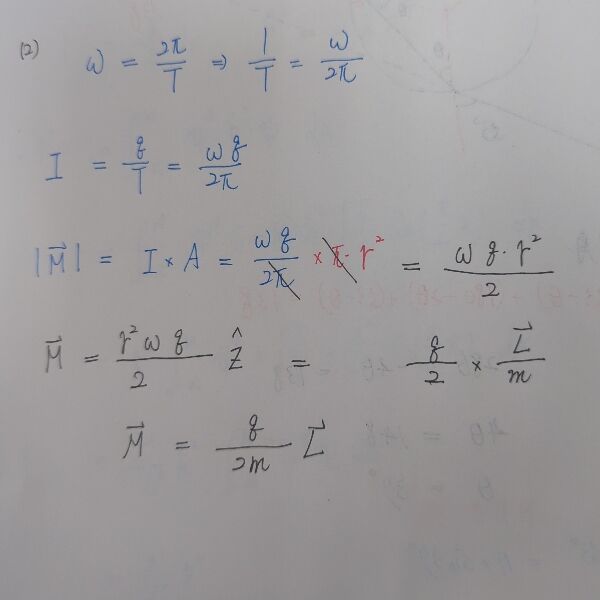 (2) ω = 2π/T ⇒ 1/T = ω/2π
I = q/T = ωq/2π
|M⃗| = I × A = ωq/2π × π · r² = ωq · r²/2
M⃗ = r²ωq/2 ẑ = q/2 × L⃗/m
M⃗ = q/2m L⃗